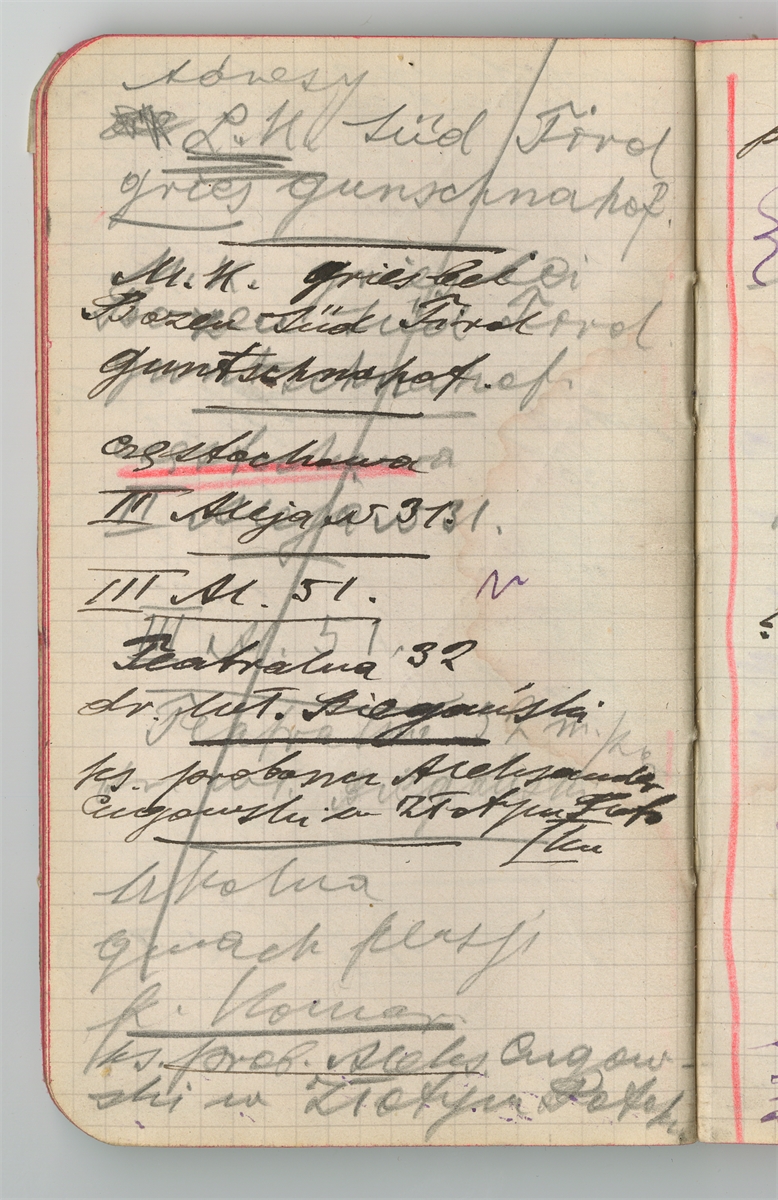 Adresy
L. K. Süd Tirol
Gries Gunschnahof.
M. K. Gries bei
Bozen Süd Tirol
Guntschnahof.
Częstochowa
II Aleja N 31.
III Al. 51.
III Al. 51
Teatralna 32
dr. Wł. Biegański
ks. proboszcz Aleksander
Cugowski w Złotym Poto
ku
Szkolna
gmach pensji
p. Komar
ks. prob. Aleks Cugow-
ski w Złotym Potoku